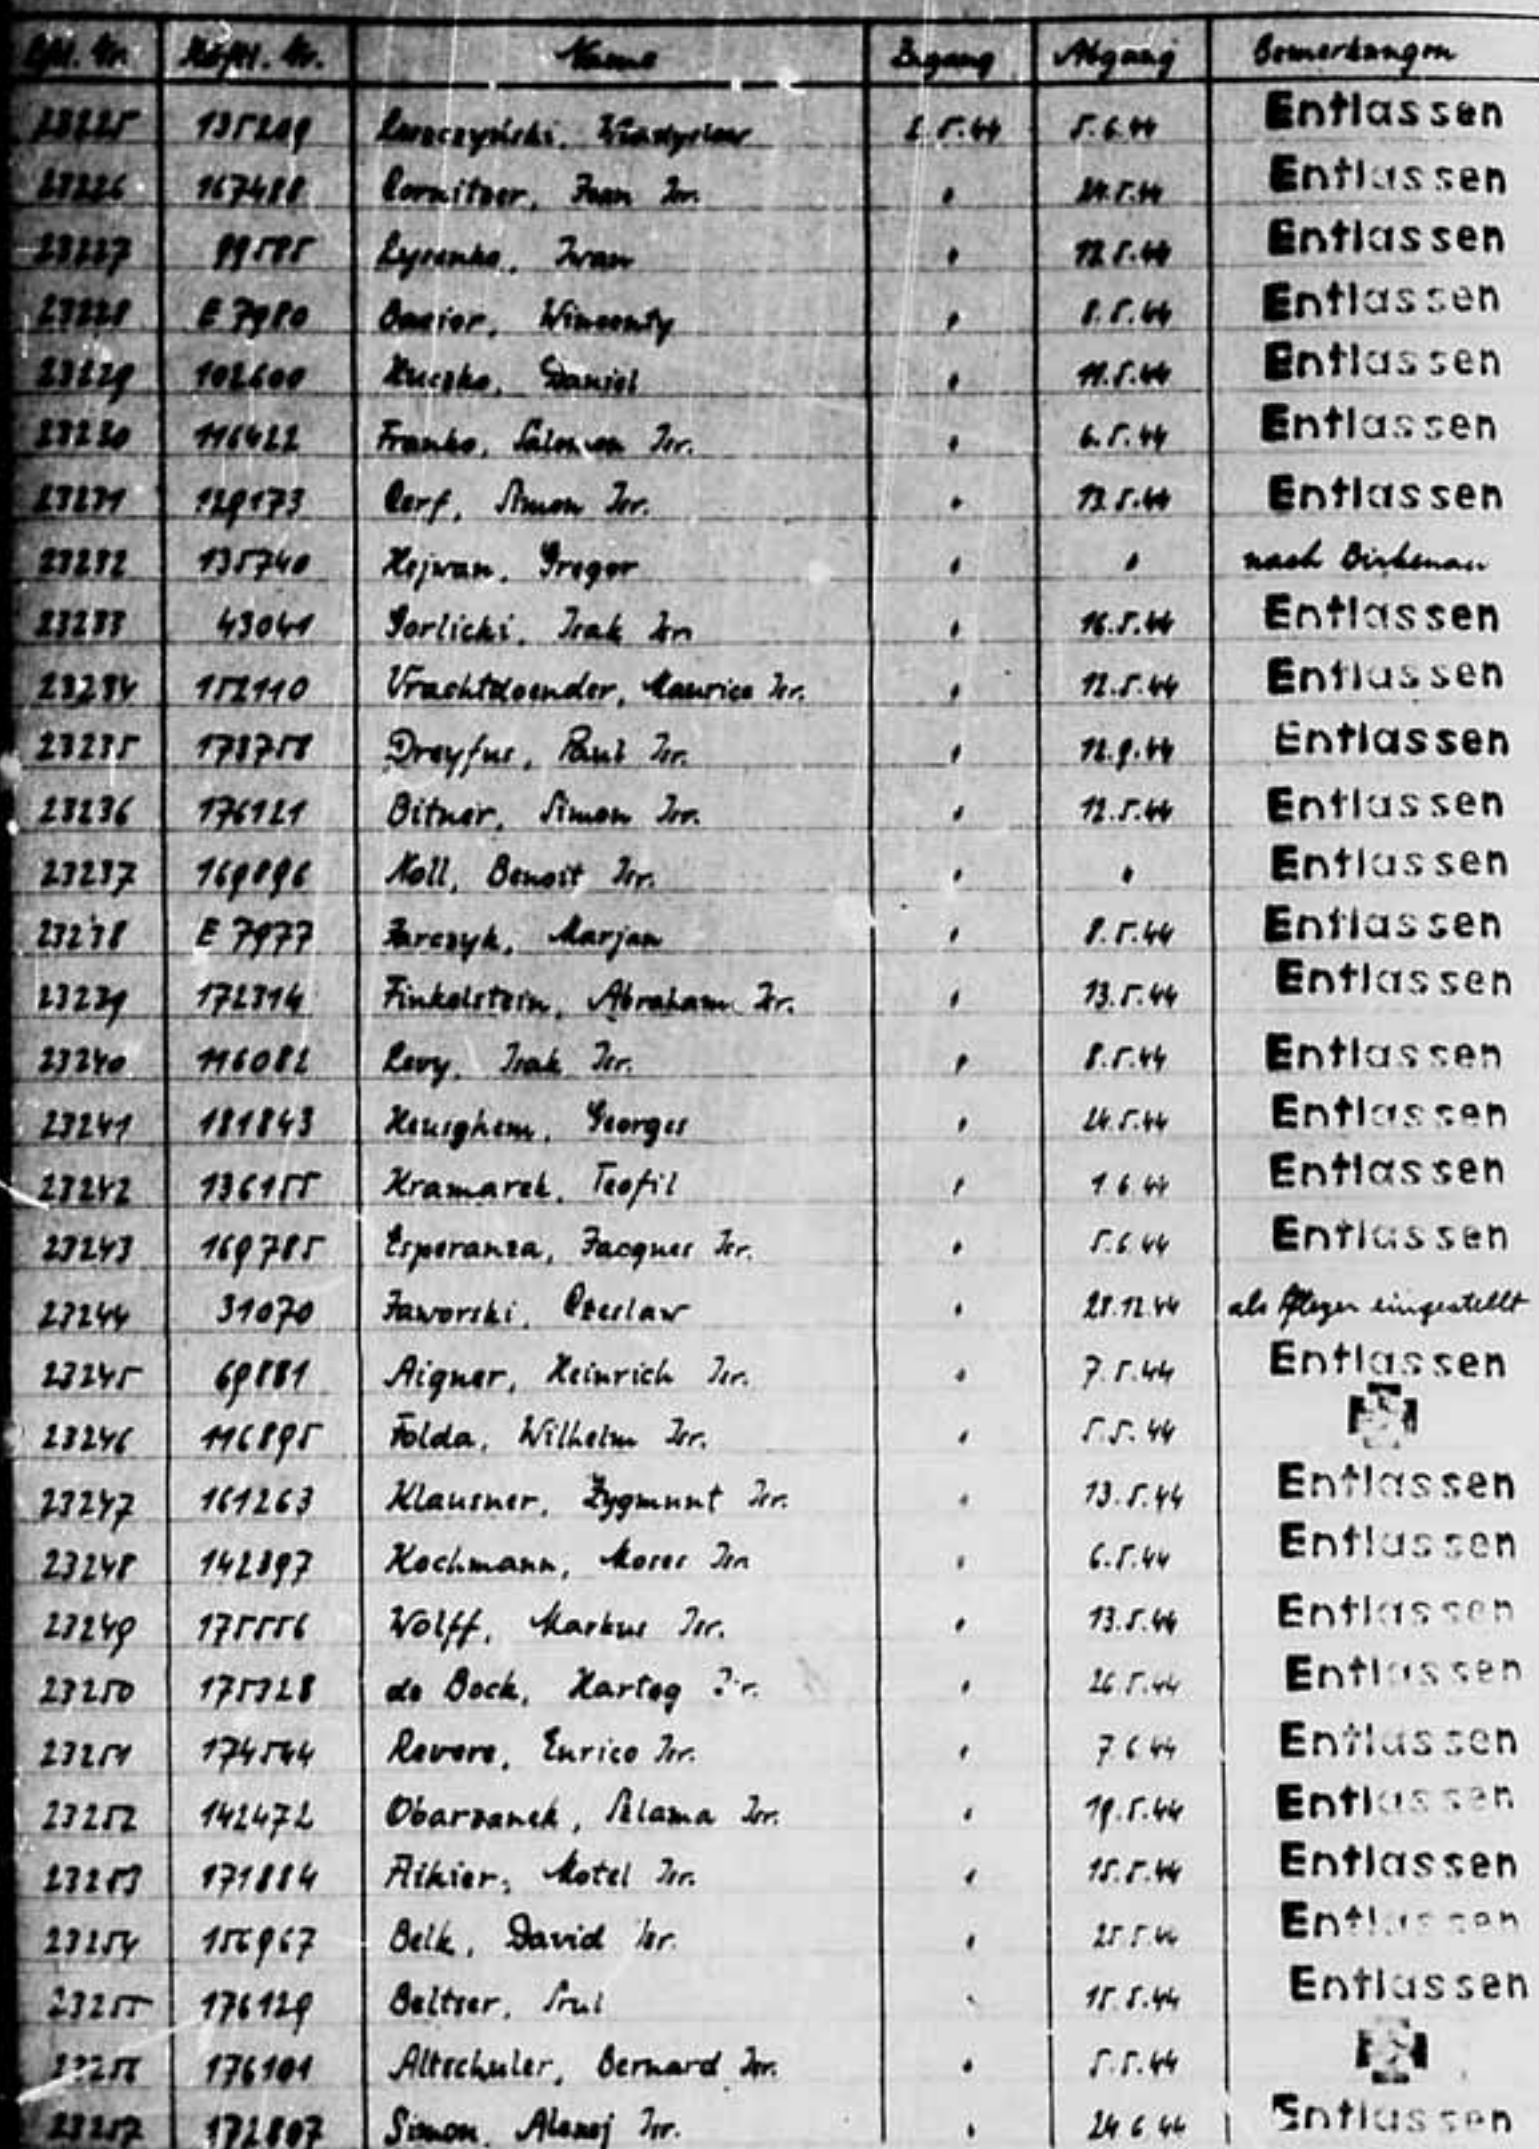 Lfd. Nr. Häftl. Nr. Name Zugang Abgang Bemerkungen
23225 135209 2.5.44 5.6.44 Entlassen
23226 167488 Cornitzer, Jean Isr. " 24.5.44 Entlassen
23227 99585 Lysenko, Iwan " 12.5.44 Entlassen
23228 E 7980 Banior, Wincenty " 8.5.44 Entlassen
23229 102600 Daniel " 11.5.44 Entlassen
23230 116422 Franko, Salomon Isr. " 6.5.44 Entlassen
23231 129173 Cerf, Simon Isr. " 13.5.44 Entlassen
23232 135740 Hejwan, Gregor " " nach Birkenau
23233 43041 Gorlicki, Isak Isr. " 16.5.44 Entlassen
23234 152110 Vrachtdoender, Maurice Isr. " 12.5.44 Entlassen
23235 173758 Dreyfus, Paul Isr. " 12.9.44 Entlassen
23236 176121 Bitner, Simon Isr. " 12.5.44 Entlassen
23237 169896 Noll, Benoit Isr. " " Entlassen
23238 E 7977 Jarczyk, Marjan " 8.5.44 Entlassen
23239 172314 Finkelstein, Abraham Isr. " 13.5.44 Entlassen
23240 116082 Levy, Isak Isr. " 8.5.44 Entlassen
23241 181843 Heusghem, Georges " 24.5.44 Entlassen
23242 136155 Kramarek, Teofil " 1.6.44 Entlassen
23243 169785 Esperanza, Jacques Isr. " 5.6.44 Entlassen
23244 31070 Jaworski, Czeslaw " 28.12.44 als Pfleger eingestellt
23245 69881 Aigner, Heinrich Isr. " 7.5.44 Entlassen
23246 116895 Folda, Wilhelm Isr. " 5.5.44
23247 161263 Klausner, Zygmunt Isr. " 13.5.44 Entlassen
23248 142397 Kochmann, Moses Isr. " 6.5.44 Entlassen
23249 175556 Wolff, Markus Isr. " 13.5.44 Entlassen
23250 175328 de Bock, Hartog Isr. " 26.5.44 Entlassen
23251 174544 Revere, Enrico Isr. " 7.6.44 Entlassen
23252 142472 Obarzanek, Szlama Isr. " 19.5.44 Entlassen
23253 171884 Motel Isr. " 15.5.44 Entlassen
23254 156967 Belk, David Isr. " 25.5.44 Entlassen
23255 176129 Beltser, Srul " 15.5.44 Entlassen
23256 176101 Altschuler, Bernard Isr. " 5.5.44
23257 172807 Simon, Isr. " 24.6.44 Entlassen